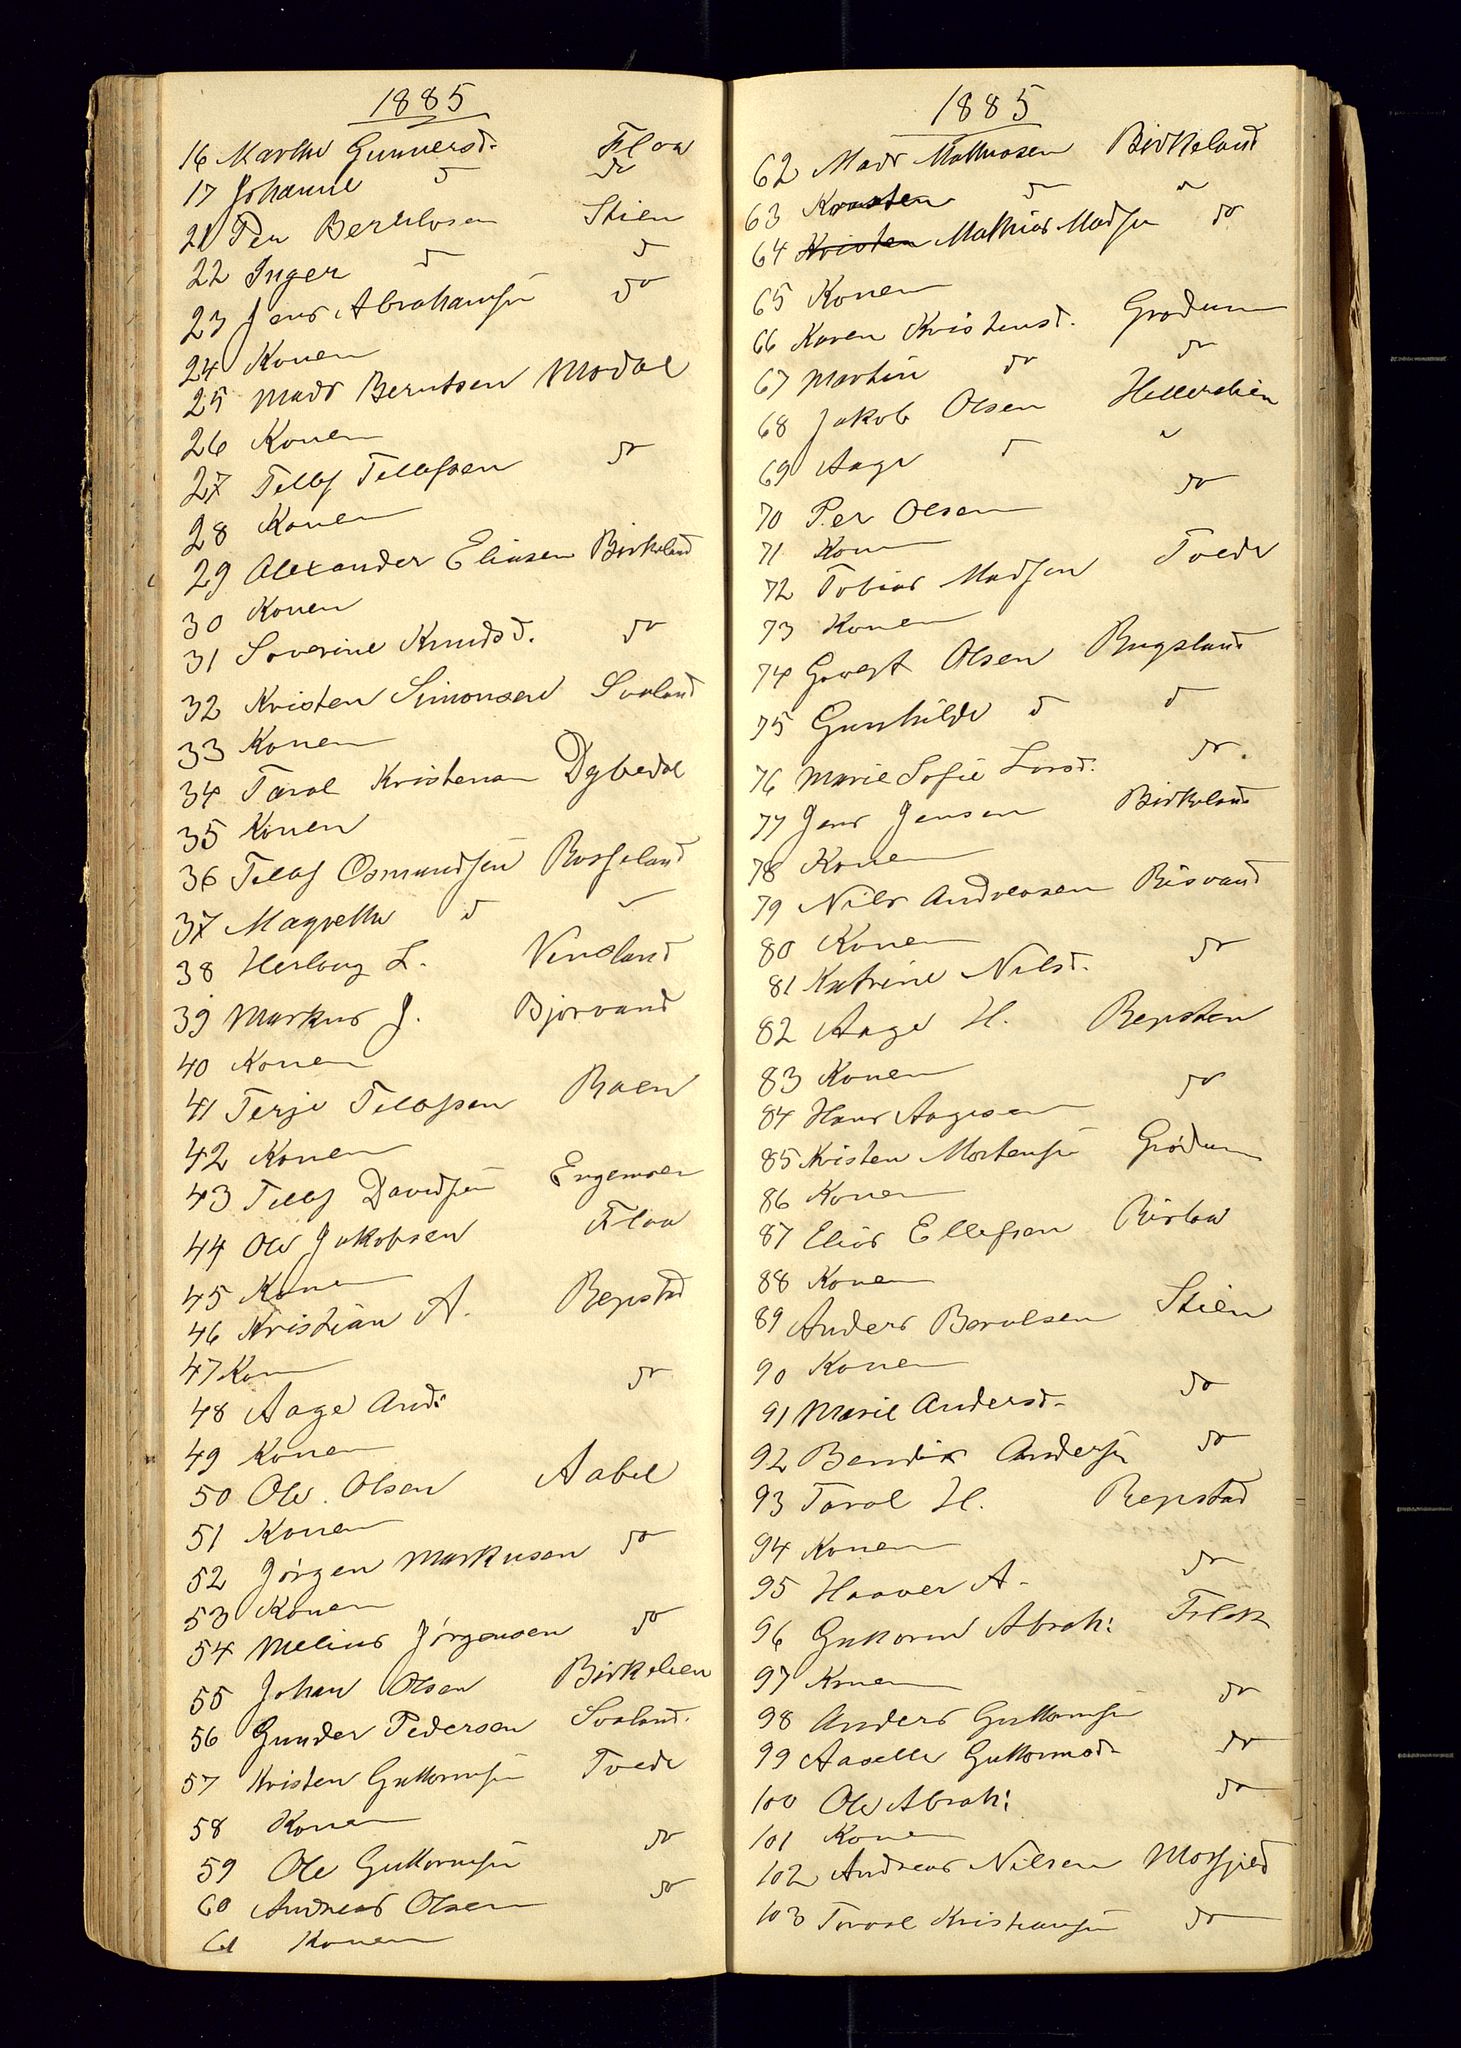 1885
16 Marthe Gunnersd. Flaa
17 Johanne d do
21 Per Berthlosen Stien
22 Inger d d
23 Jens Abrahamsen do
24 Konen
25 Mads Berntsen Modal
26 Konen
27 Tellef Tellefsen do
28 Konen
29 Alexander Eliasen Birkeland
30 Konen
31 Severine Knudsd. do
32 Kristen Simonsen Svaland
33 Konen
34 Taral Kristensen Dybedal
35 Konen
36 Tellef Osmundsen Rosseland
37 Magrethe d
38 Herlaug L. Vensland
39 Markus J. Bjorvand
40 Konen
41 Terje Tellefsen Raen
42 Konen
43 Tellef Davidsen Engemoen
44 Ole Jakobsen Flaa
45 Konen
46 Kristian A. Repstad
47 Kon
48 Aage And: do
49 Konen
50 Ole Olsen Aabel
51 Konen
52 Jørgen Markusen do
53 Konen
54 Melius Jørgensen do
55 Johan Olsen Birkelien
56 Gunder Pedersen Svaland.
57 Kristen Guttormsen Tvede
58 Konen
59 Ole Guttormsen do
60 Andreas Olsen do
61 Konen
1885
62 Mads Mathiasen Birkeland
63 Konen d "
64 Kristen Mathias Madsen do
65 Konen
66 Karen Kristensd. Grødum
67 Martin do do
68 Jakob Olsen Hellerslien
69 Aage d "
70 Per Olsen do
71 Konen
72 Tobias Madsen Tvede
73 Konen
74 Govert Olsen Rugsland
75 Gunhilde d d
76 Marie Sofie Larsd. do
77 Jens Jensen Birkeland
78 Konen
79 Nils Andreasen Risvand
80 Konen
81 Katrine Nilsd. do
82 Aage H. Repstad
83 Konen
84 Hans Aagesen do
85 Kristen Mortensen Grødum
86 Konen
87 Elias Ellefsen Rislaa
88 Konen
89 Anders Barolsen Stien
90 Konen
91 Marie Andersd. do
92 Bendix Andersen do
93 Taral H. Repstad
94 Konen
95 Haaver A. do
96 Guttorm Abrah:
97 Konen
98 Anders Guttormsen do
99 Aaselle Guttormsd. do
100 Ole Abrah: do
101 Konen
102 Andreas Nilsen Mosfjeld
103 Taraal Kristiansen do